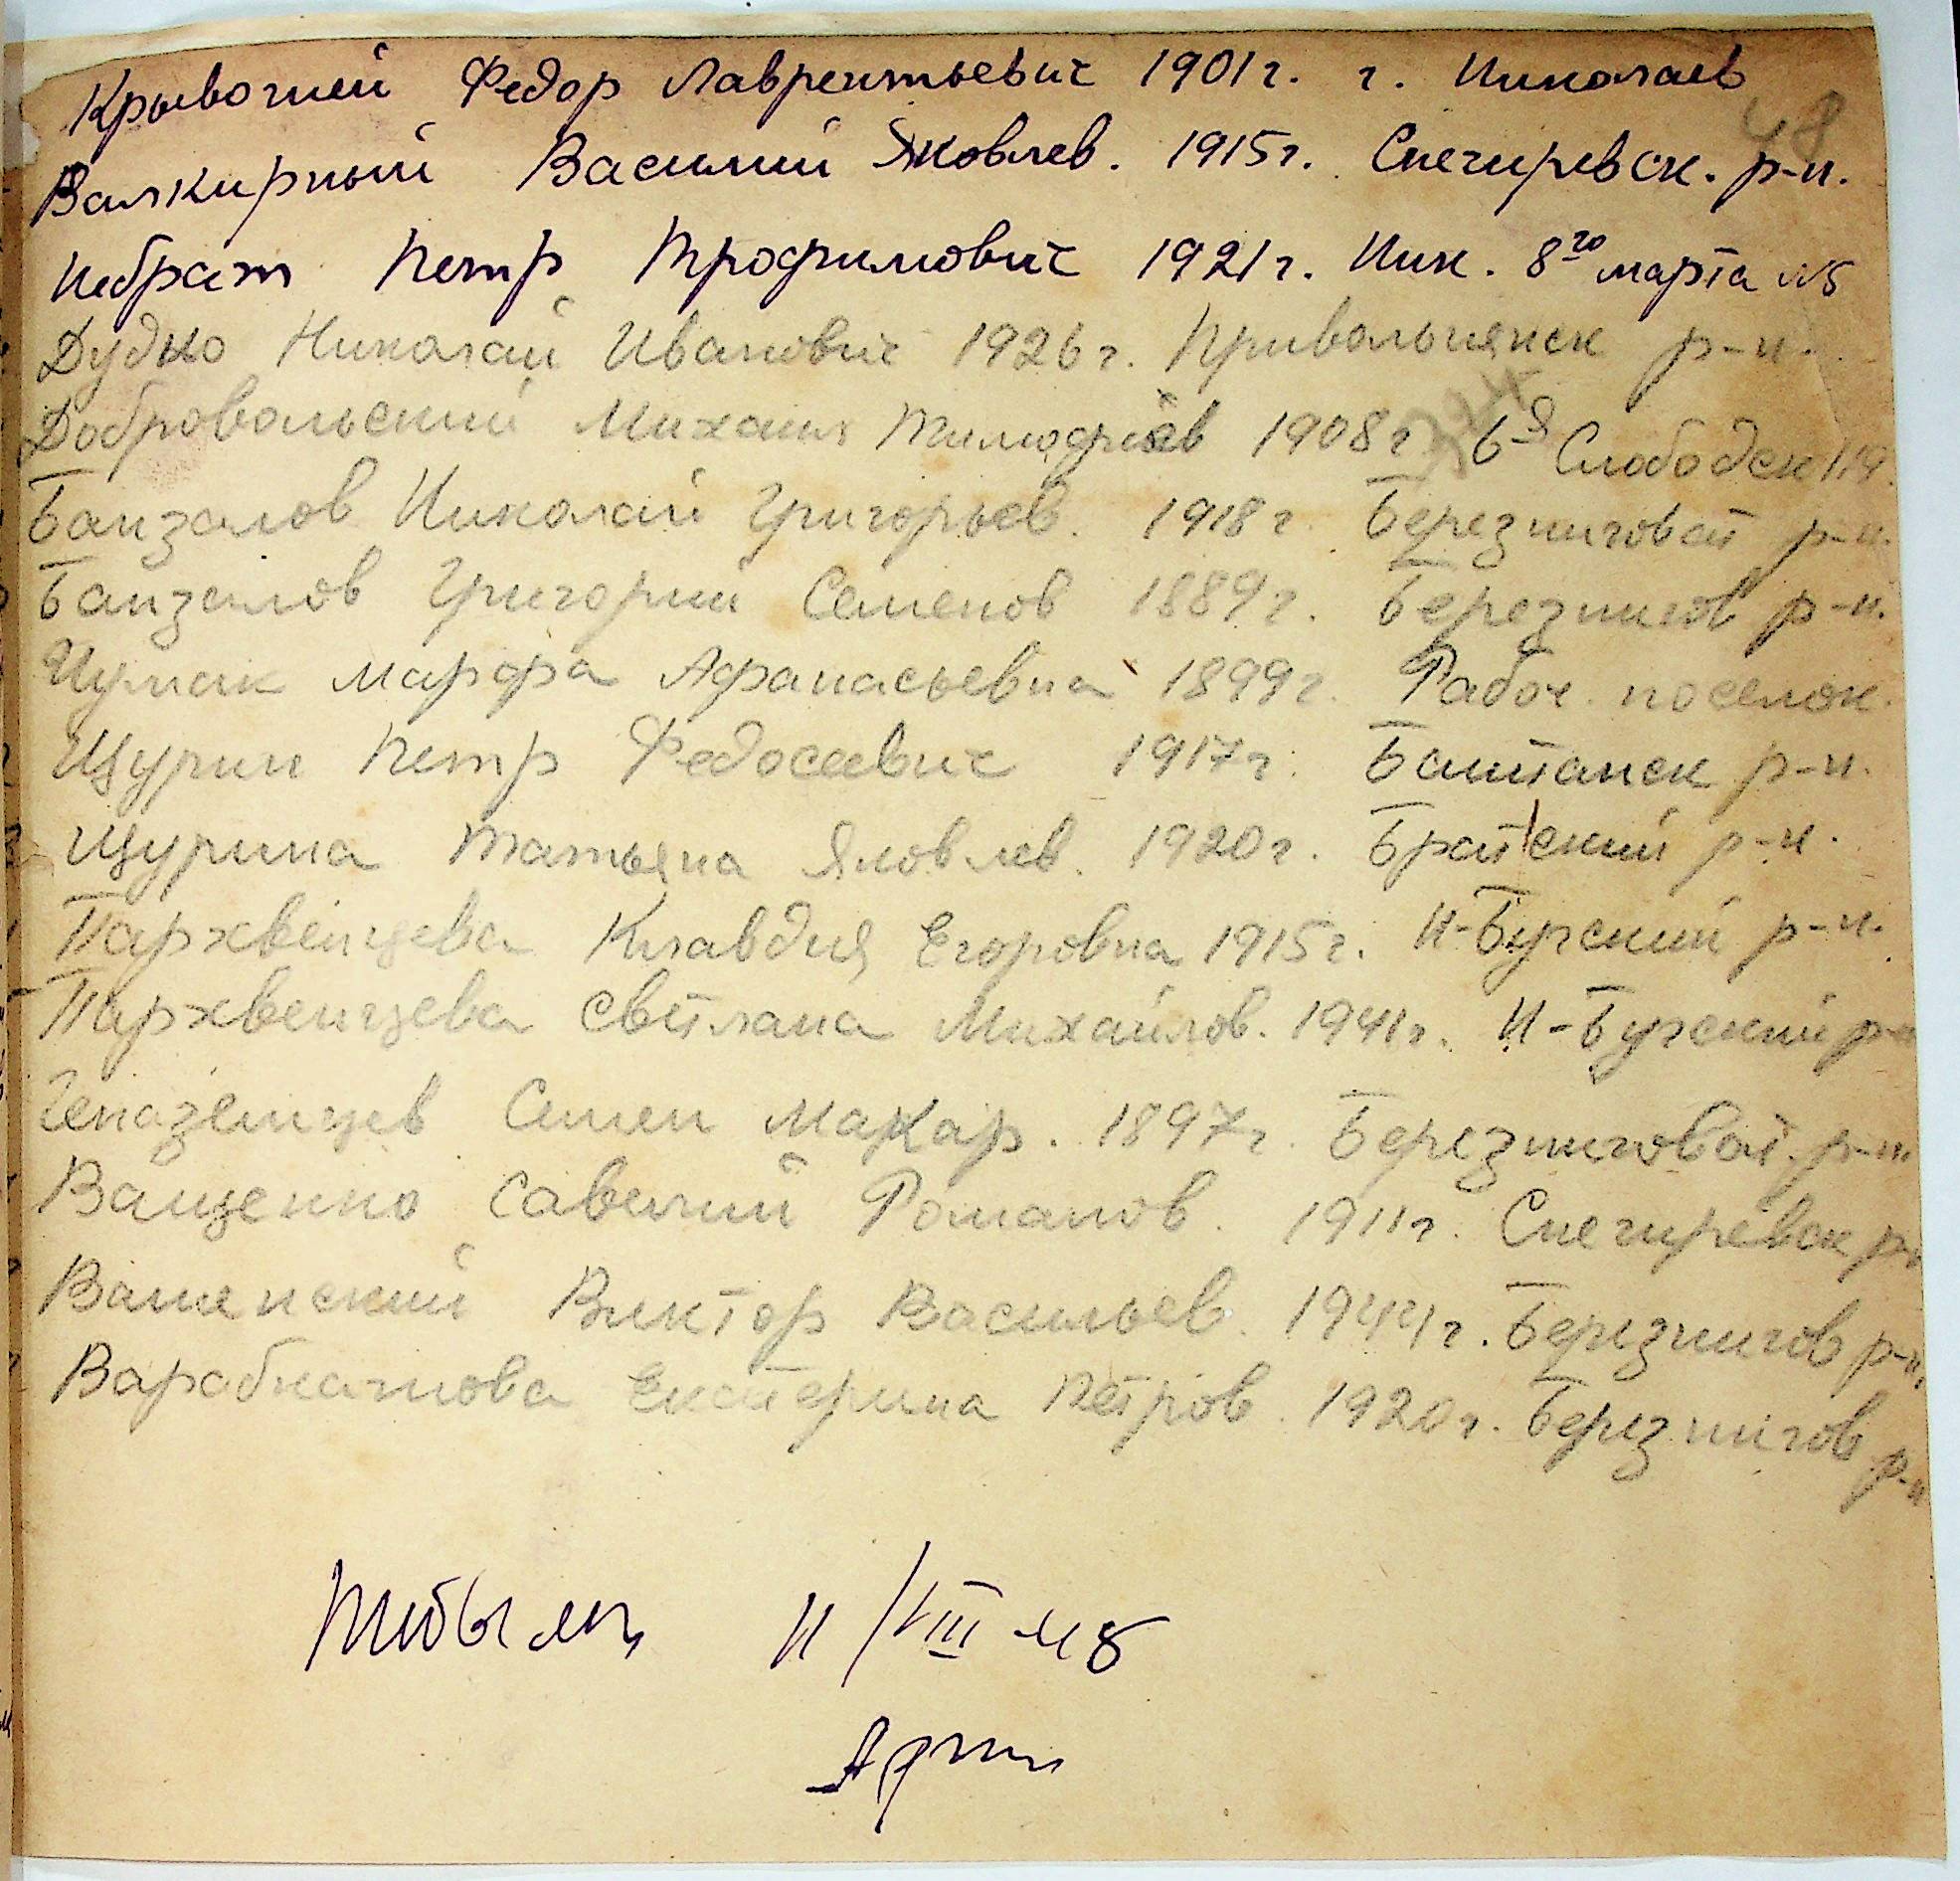 Крывогний Федор Лаврентьевич 1901г. г. Николаев
48
Валкирный Василий Яковлев. 1915г. Снегиревск. р-н.
Небрат Петр Трофимович 1921г. Ник. 8го марта №5
Дудко Николай Иванович 1926г. Привольнянск р-н.
Добровольский Михаил Тимофеев 1908г 6я Слободск 119
Банзалов Николай Григорьев. 1918г. Березниговат р-н.
Банзалов Григорий Семенов 1889г. Березнигов р-н.
Чумак Марфа Афанасьевна 1899г. Рабоч. поселок.
Щурин Петр Федосеевич 1917г. Баштанск р-н.
Щурина Татьяна Яковлев. 1920г. Братский р-н.
Пархвенцева Клавдия Егоровна 1915г. Н-Бугский р-н.
Пархвенцева Светлана Михайлов. 1941г. Н-Бугский р-н
Семен Макар. 1897г. Березниговат. р-н.
Ващенко Савелий Романов. 1911г. Снегиревск р-н
Виктор Васильев. 1944г. Березнигов р-н.
Екатерина Петров. 1920г. Березнигов р-н
11/VIII-48